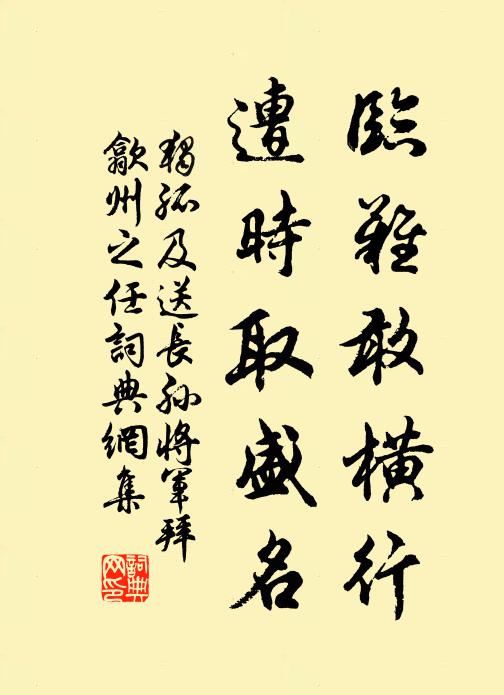 臨難敢橫行
遭時取盛名
獨孤及送長孫將軍拜
歙州之任詞典網集
詞典
网印